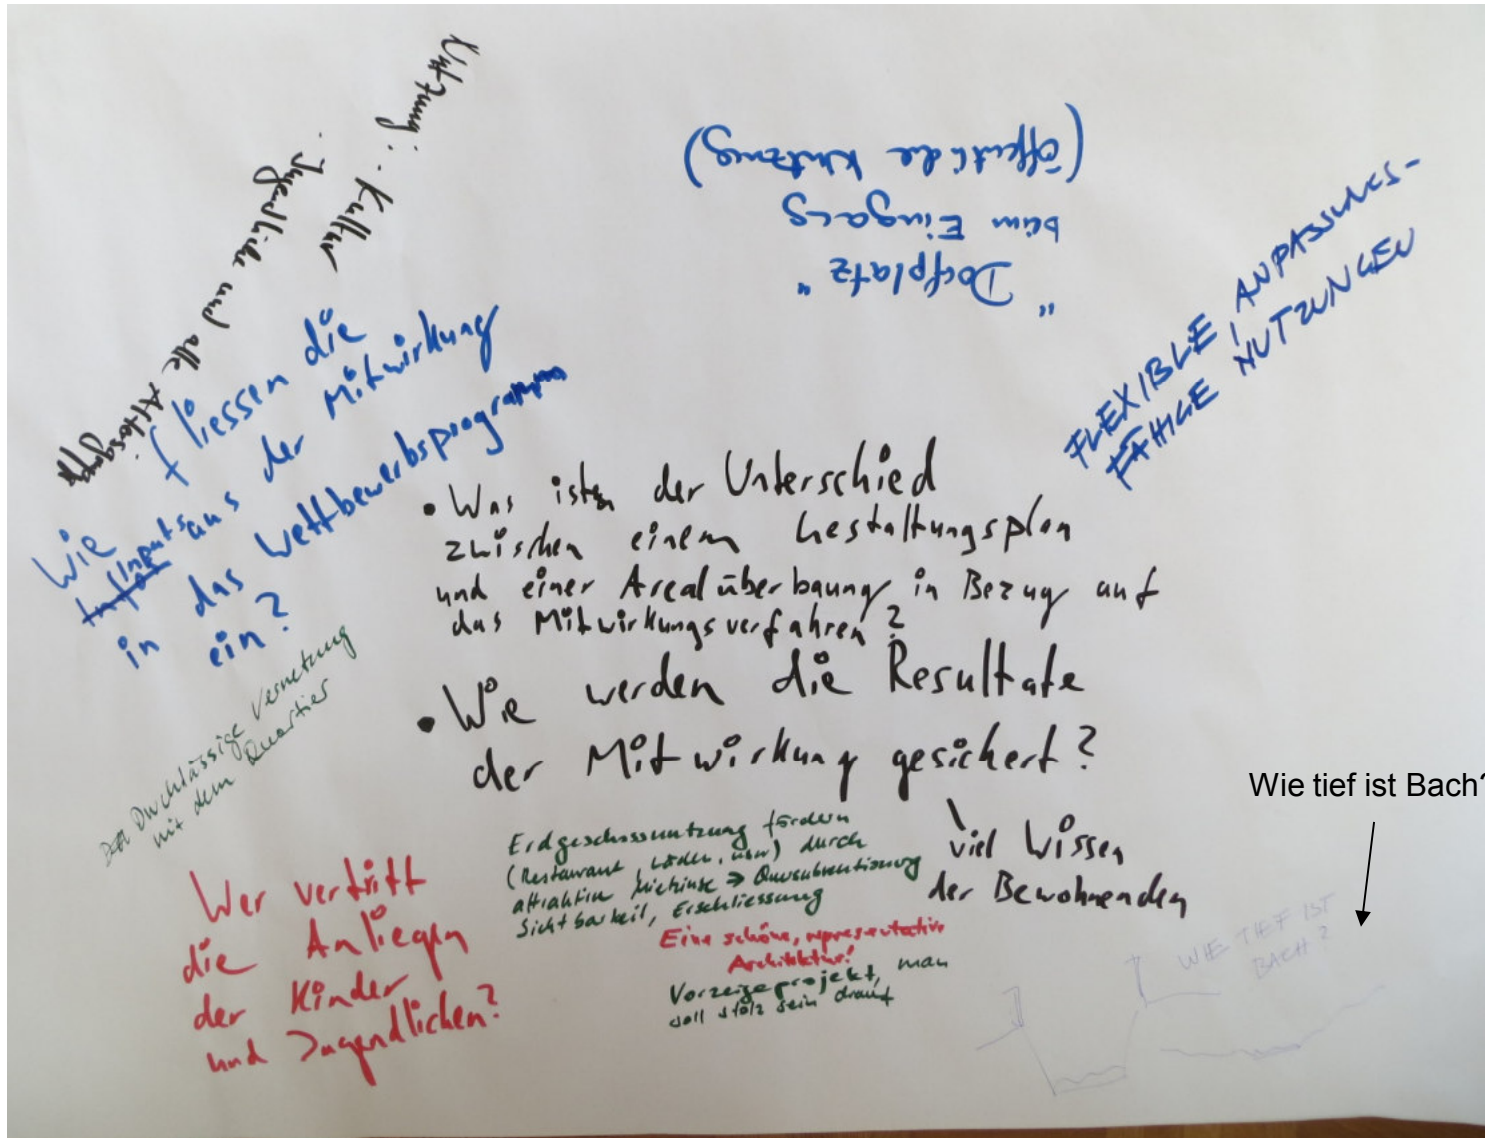 Nutzung: · Kultur
· Jugendliche und alle Altersgrupp
"Dorfplatz"
beim Eingang
(öffentliche Nutzung)
FLEXIBLE, ANPASSUNGS-
FÄHIGE NUTZUNGEN
Wie fliessen die
Inputs aus der Mitwirkung
in das Wettbewerbsprogramm
ein?
• Was ist der Unterschied
zwischen einem Gestaltungsplan
und einer Arealüberbauung in Bezug auf
das Mitwirkungsverfahren?
• Wie werden die Resultate
der Mitwirkung gesichert?
viel Wissen
der Bewohnenden
Durchlässige Vernetzung
mit dem Quartier
Wer vertritt
die Anliegen
der Kinder
und Jugendlichen?
Erdgeschossnutzung fördern
(Restaurant, Läden, usw) durch
attraktive Mietzinse → Quersubventionierung
Sichtbarkeit, Erschliessung
Eine schöne, repräsentative
Architektur!
Vorzeigeprojekt, man
soll stolz sein drauf
Wie tief ist Bach?
WIE TIEF IST
BACH?